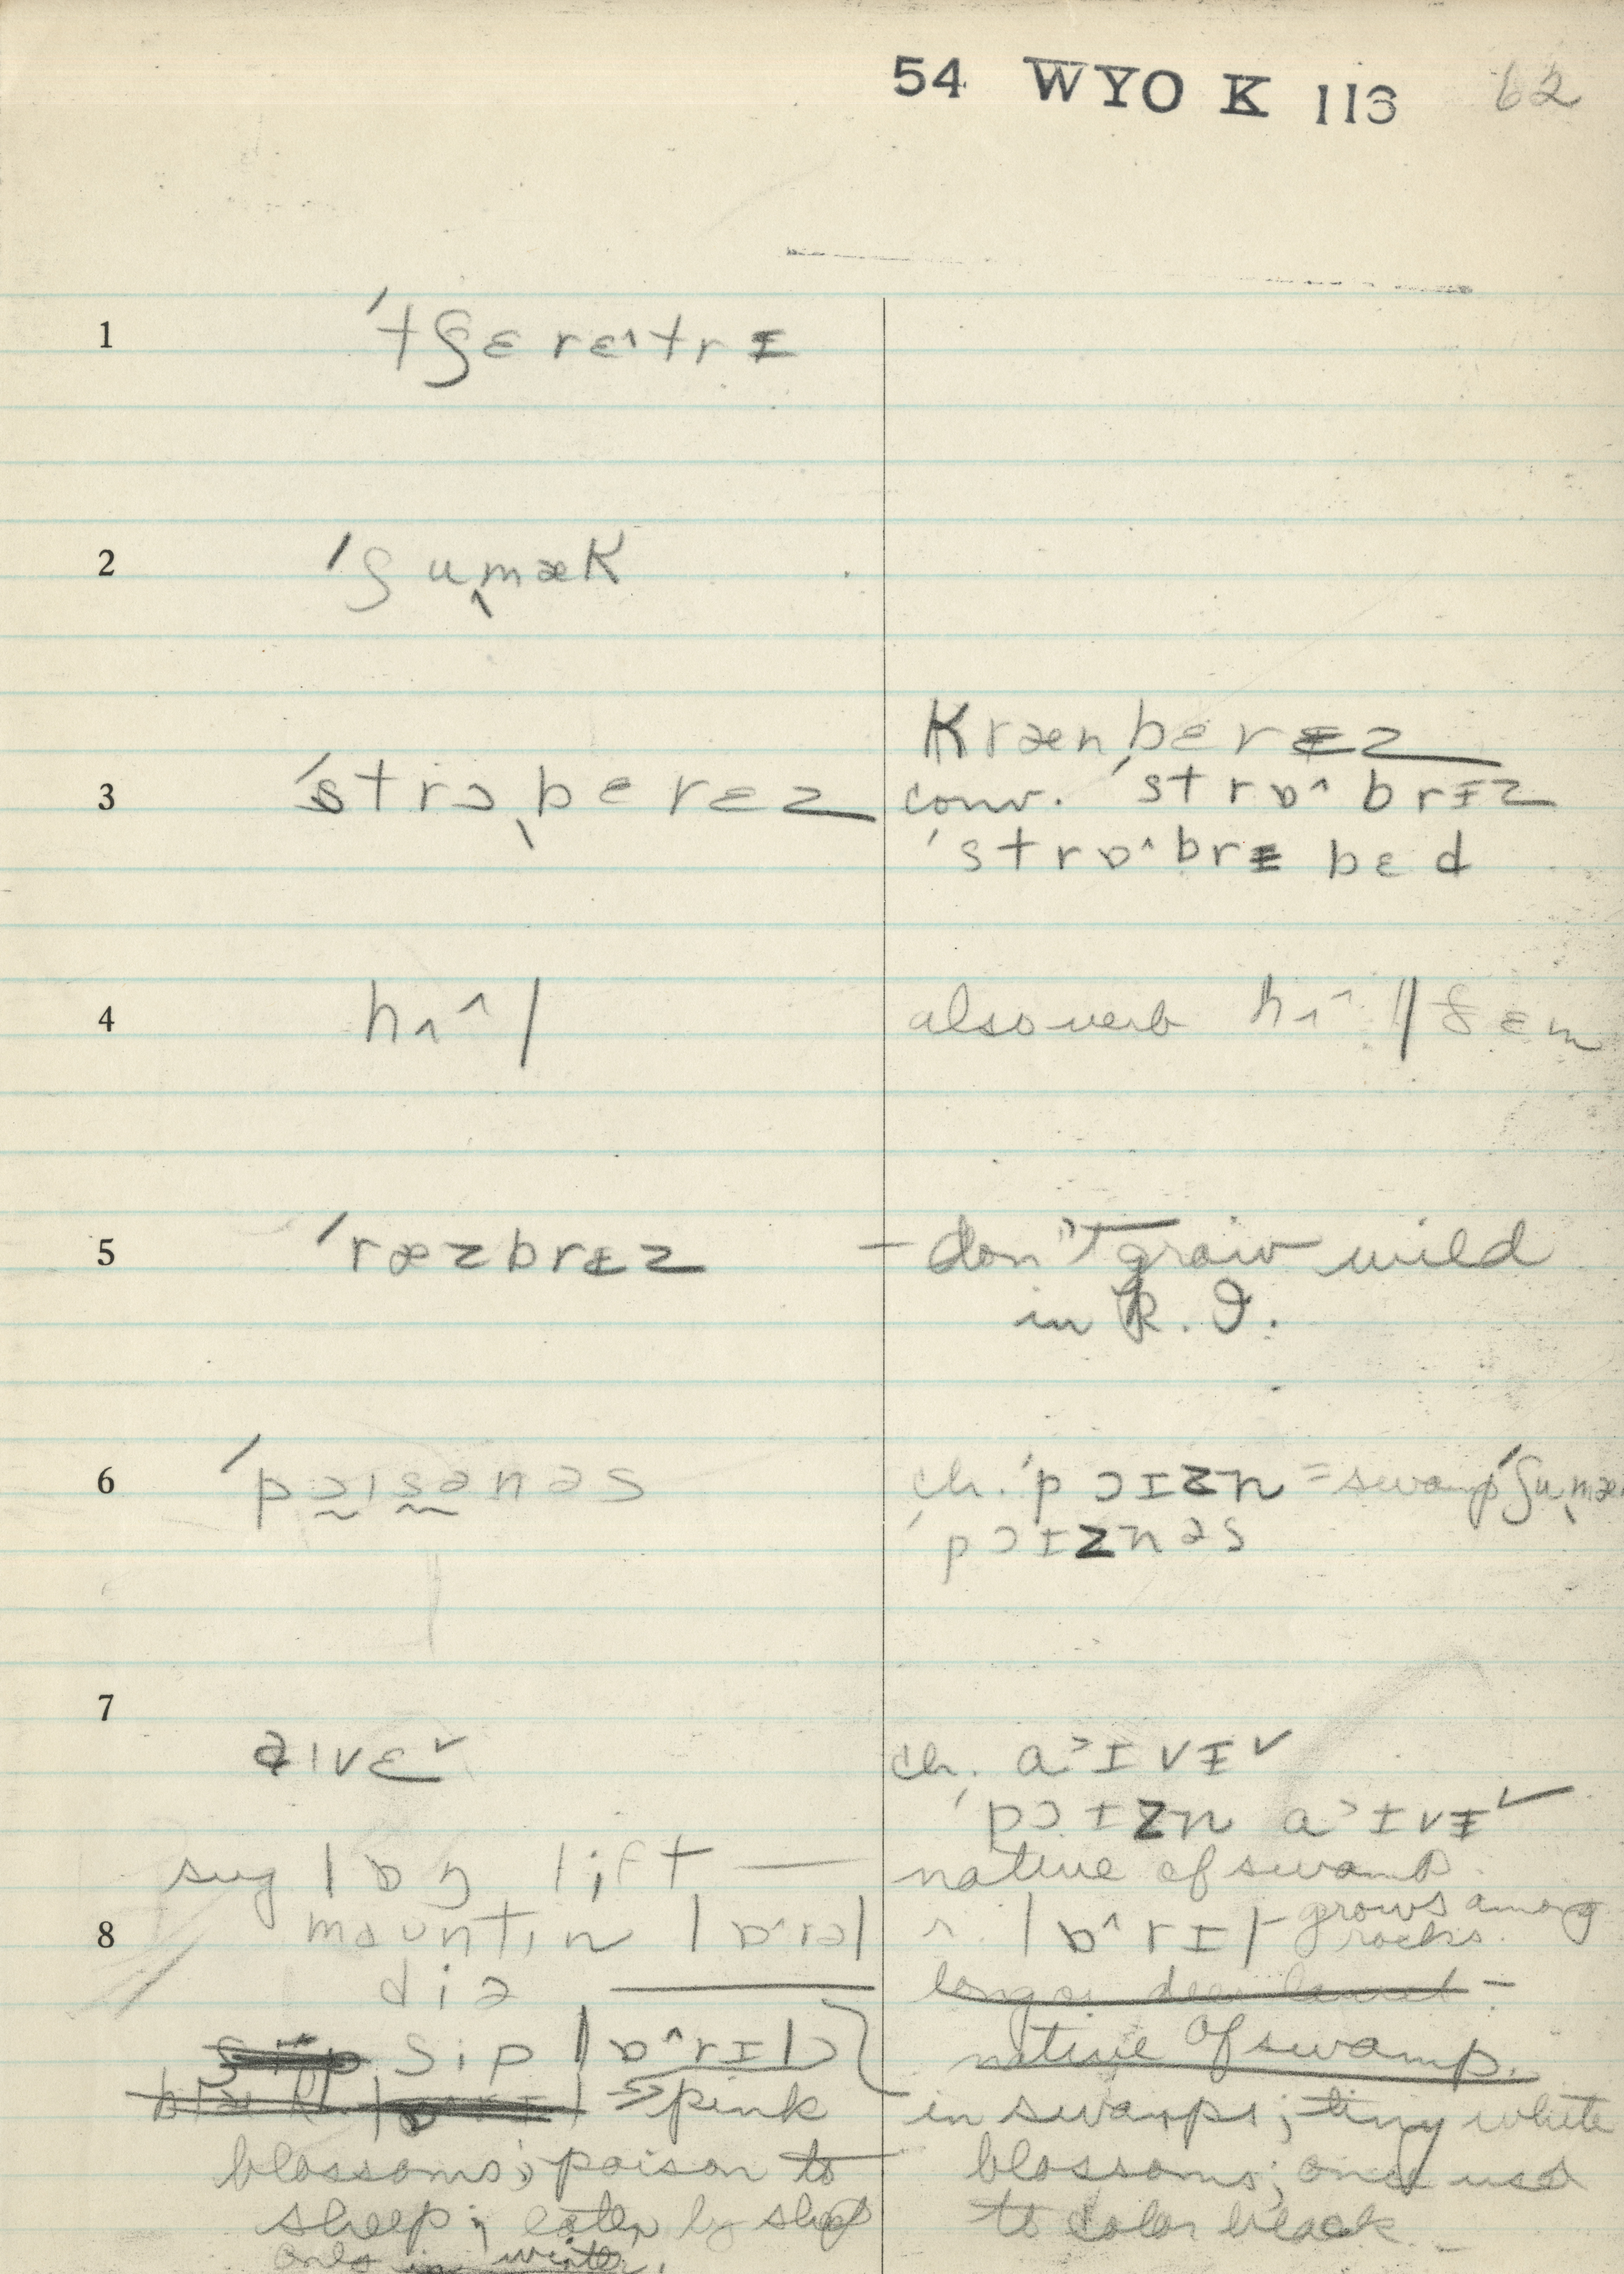 54 WYO K 113 62
1 ˈtʃɛrɛ^trɪ
2 ˈʃu˰mæk
krænbɛrɪz
3 ˈstrɔ˴bɛrɛz conv. ˈstrɒ^brɪz
ˈstrɒ^brɪ bɛd
4 hɪ^l also verb hɪ^l ðɛm
5 ˈræzbrɪz – don't grow wild
in R. I.
6 ˈpɔɪsənəs ch. ˈpɔɪzn = swamp ˈʃumæ
ˈpɔɪznəs
7
aɪvɛˇ ch. a>ɪvɪˇ
ˈpɔɪzn a>ɪvɪˇ
sug lɒŋ lift — native of swamp.
8 mauntɪn lɒ^rəl r. lɒ^rɪl – grows among
rocks.
diə
native of swamp.
ʃip lɒ^rɪl
→ pink in swamps; tiny white
blossoms; poison to blossoms; once used
sheep; eaten by sheep to color black.
only in winter.